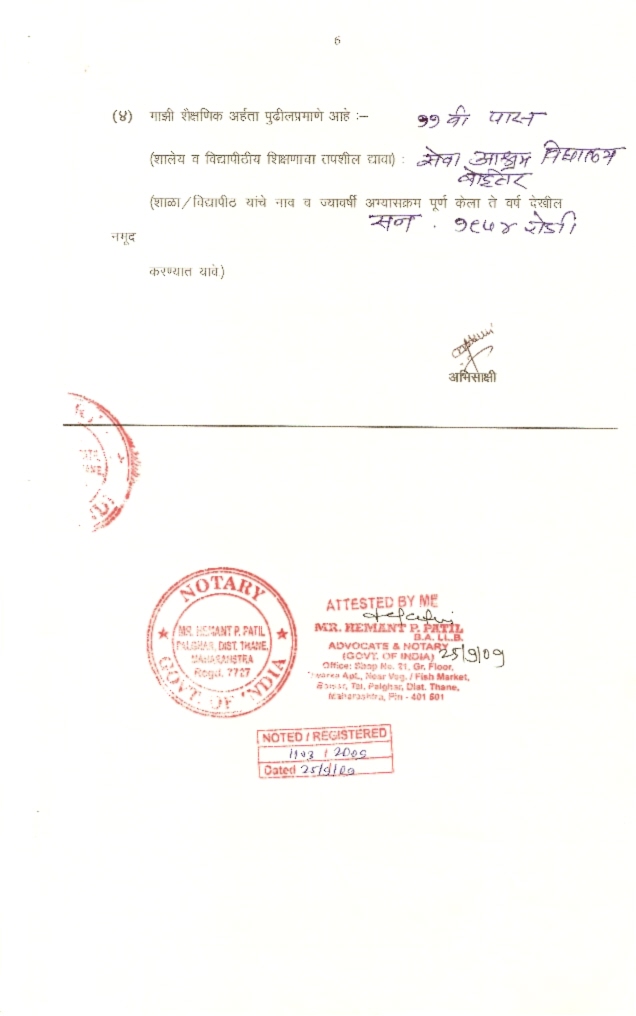 6
(४) माझी शैक्षणिक अर्हता पुढीलप्रमाणे आहे :- ११ वी पास
(शालेय व विद्यापीठीय शिक्षणाचा तपशील द्यावा) : सेवा आश्रम विद्यालय
बोईसर
(शाळा/विद्यापीठ यांचे नाव व ज्यावर्षी अभ्यासक्रम पूर्ण केला ते वर्ष देखील
सन . १९७४ रोजी
नमूद
करण्यात यावे)
अभिसाक्षी
NOTARY
MR. HEMANT P. PATIL
PALGHAR, DIST. THANE,
MAHARASHTRA
Regd. 7727
GOVT. OF INDIA
ATTESTED BY ME
MR. HEMANT P. PATIL
B.A. LL.B.
ADVOCATE & NOTARY
(GOVT. OF INDIA) 25/9/09
Office: Shop No. 21, Gr. Floor,
Apt., Near Veg. / Fish Market,
Boisar, Tal. Palghar, Dist. Thane,
Maharashtra, Pin - 401 501
NOTED / REGISTERED
1103 / 2009
Dated 25/9/09